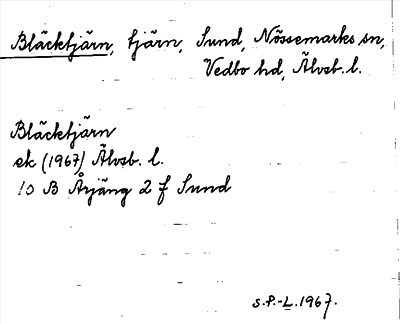 Bläcktjärn, tjärn, Sund, Nössemarks sn,
Vedbo hd, Älvsb. l.
Bläcktjärn
ek (1967) Älvsb. l.
10 B Årjäng 2 f Sund
S.P.-L. 1967.